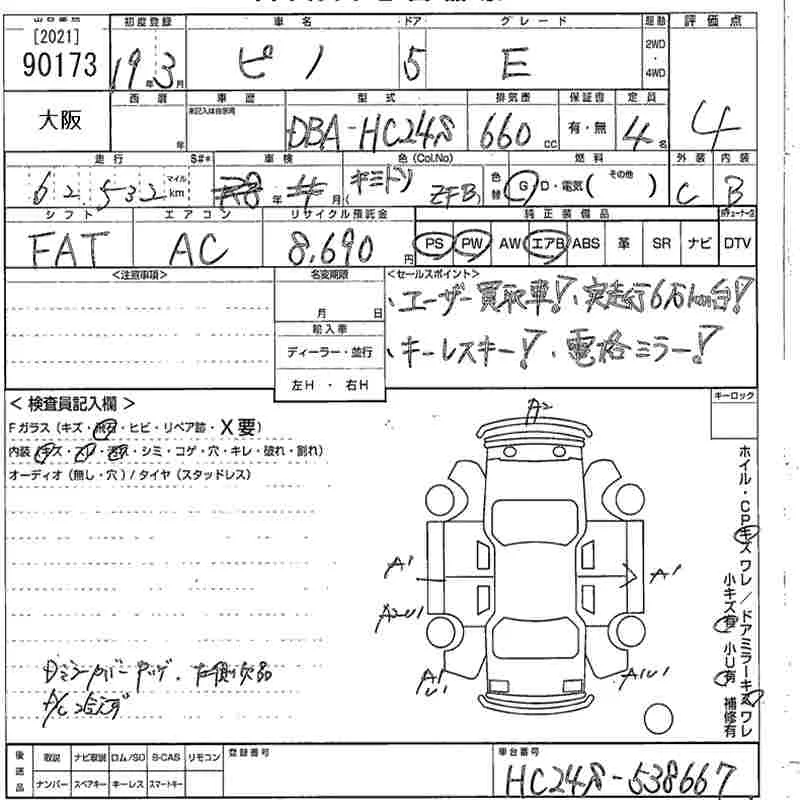 [2021]
90173
初度登録 車名 ドア グレード 駆動 評価点
19年3月 ピノ 5 E 2WD・4WD 4
大阪
西暦 車歴 型式 排気量 保証書 定員
年 未記入は自家用 DBA-HC24S 660cc 有・無 4名
走行 S#* 車検 色(Col.No) 燃料 外装 内装
62,532 マイル km 年 月 ( ZFB) 色替 G・D・電気( その他 ) C B
シフト エアコン リサイクル預託金 純正装備品
FAT AC 8,690円 PS PW AW エアB ABS 革 SR ナビ DTV
<注意事項> 名変期限 <セールスポイント>
月 日
、ユーザー買取車!、実走行6万km台!
輸入車
ディーラー・並行
、キーレスキー!、電格ミラー!
左H ・ 右H
< 検査員記入欄 >
Fガラス(キズ・飛石・ヒビ・リペア跡・X要)
内装(キズ・スレ・汚れ・シミ・コゲ・穴・キレ・破れ・割れ)
オーディオ(無し・穴)/タイヤ(スタッドレス)
キーロック
A2
A1
A1
A2U1
A1U1
A1U1
ホイル・CPキズ ワレ / ドアミラーキズ ワレ
小キズ有 小U有 補修有
後送品 取説 ナビ取説 ロム/SD B-CAS リモコン
ナンバー スペアキー キーレス スマートキー
登録番号
車台番号
HC24S-538667